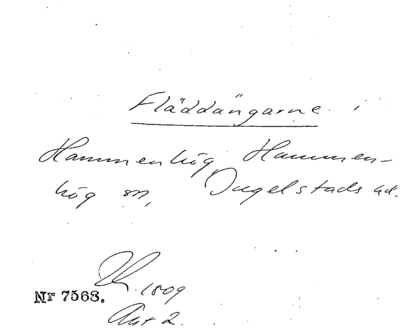 Fläddängarne i
Hammenhög Hammen-
hög sn, Ingelstads hd.
1809
Nr 7568.
Akt 2.